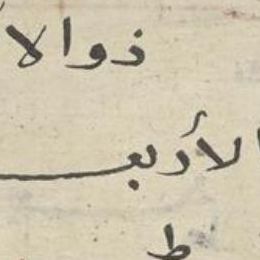 ذوالا
الأربعـ
ط